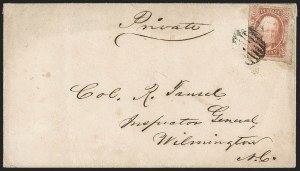 Private
Col. R. Tansel
Inspector General,
Wilmington
N.C.